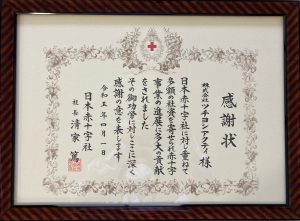 感謝状
株式会社ツチヨシアクティ様
日本赤十字社に対し重ねて
多額の社資を寄せられ赤十字
事業の進展に多大の貢献
をされました
その御功労に対しここに深く
感謝の意を表します
令和五年四月一日
日本赤十字社
社長 清家篤